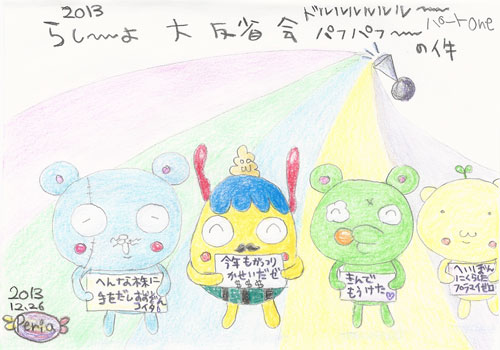 2013
らし〜よ 大反省会 ドルルルルルル〜
パフパフ〜 パートone
の件
へんな株に
手をだし
今年もがっつり
かせいだぜ
$$$
きんで
もうけた
へいぼん
にくらした
プラマイゼロ
2013
12.26
Peria